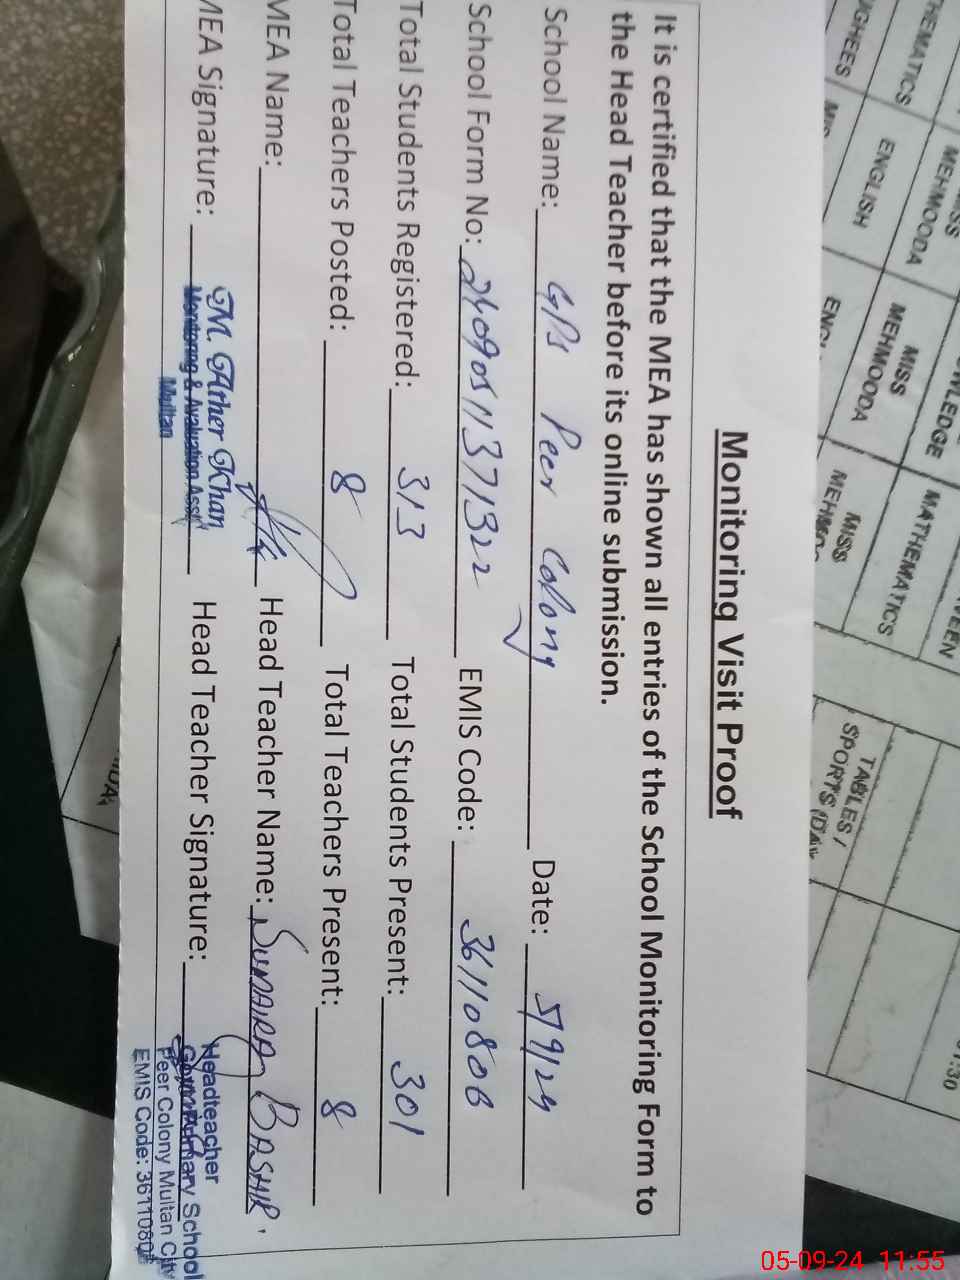 Monitoring Visit Proof
It is certified that the MEA has shown all entries of the School Monitoring Form to
the Head Teacher before its online submission.
School Name: GPS Peer Colony Date: 5/9/24
School Form No: 24090511371322 EMIS Code: 36110806
Total Students Registered: 313 Total Students Present: 301
Total Teachers Posted: 8 Total Teachers Present: 8
MEA Name: Head Teacher Name: SUMAIRA BASHIR.
MEA Signature: Head Teacher Signature:
M. Ather Khan
Monitoring & Avaluation Asst
Multan
Headteacher
Primary School
Peer Colony Multan City
EMIS Code: 3611080
MATHEMATICS
ENGLISH
MEHMOODA
MISS
MEHMOODA
MISS
MATHEMATICS
TABLES /
SPORTS
05-09-24 11:55